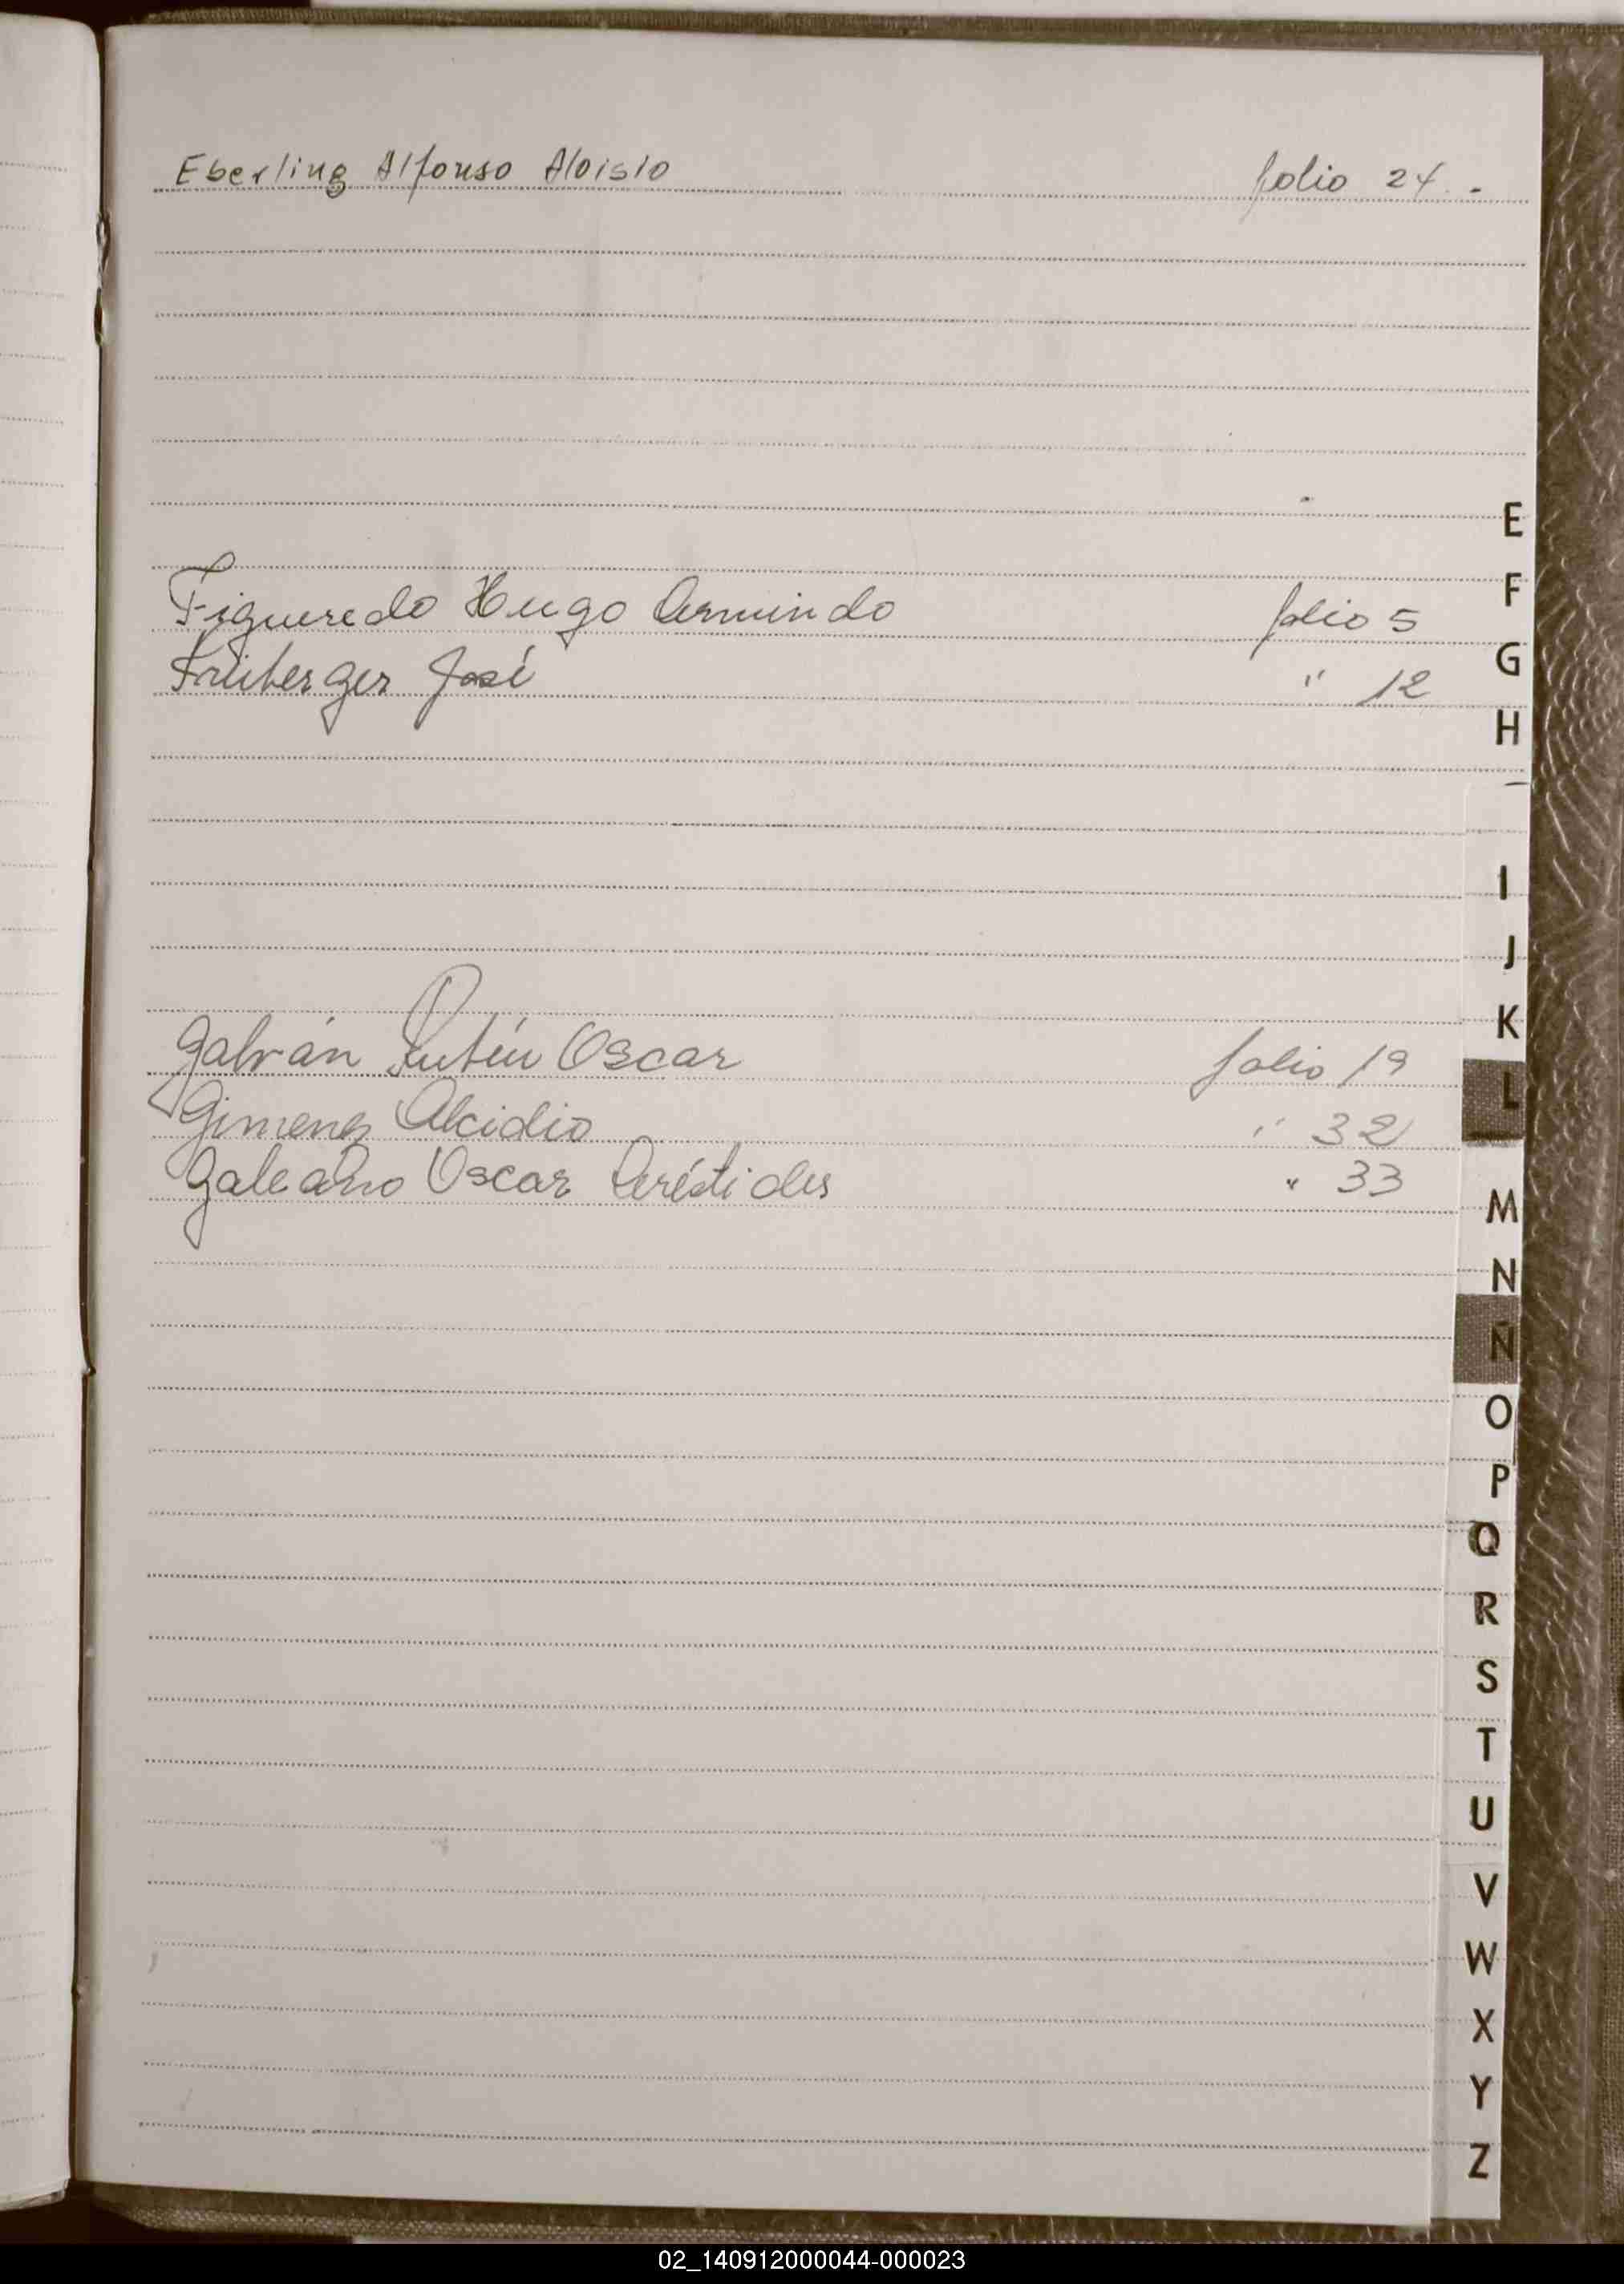 Eberling Alfonso Aloisio folio 24.-
Figueredo Hugo Armindo folio 5
José " 12
Galván Rubén Oscar folio 19
Gimenez Alcidio " 32
Galeano Oscar Arístides " 33
E
F
G
H
I
J
K
L
M
N
Ñ
O
P
Q
R
S
T
U
V
W
X
Y
Z
02_140912000044-000023